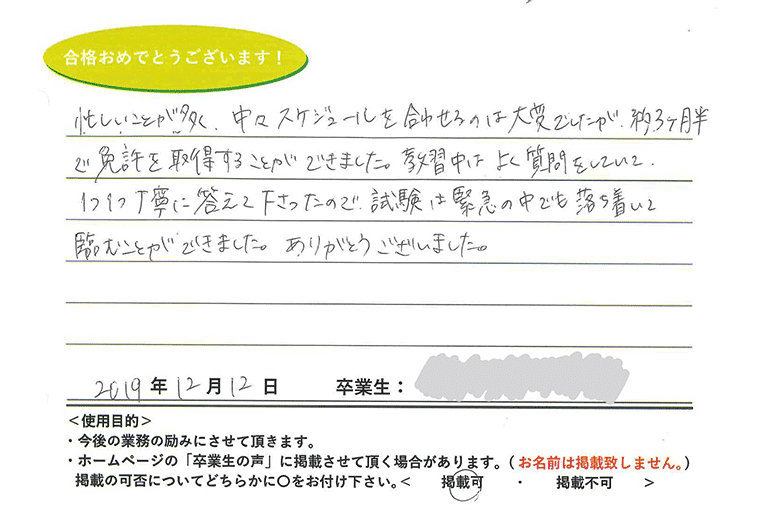 合格おめでとうございます！
忙しいことが多く、中々スケジュールを合わせるのは大変でしたが、約3ヶ月半
で免許を取得することができました。教習中はよく質問をしていて、
1つ1つ丁寧に答えて下さったので、試験は緊急の中でも落ち着いて
臨むことができました。ありがとうございました。
2019年12月12日 卒業生：
＜使用目的＞
・今後の業務の励みにさせて頂きます。
・ホームページの「卒業生の声」に掲載させて頂く場合があります。（お名前は掲載致しません。）
掲載の可否についてどちらかに〇をお付け下さい。＜ 掲載可 ・ 掲載不可 ＞